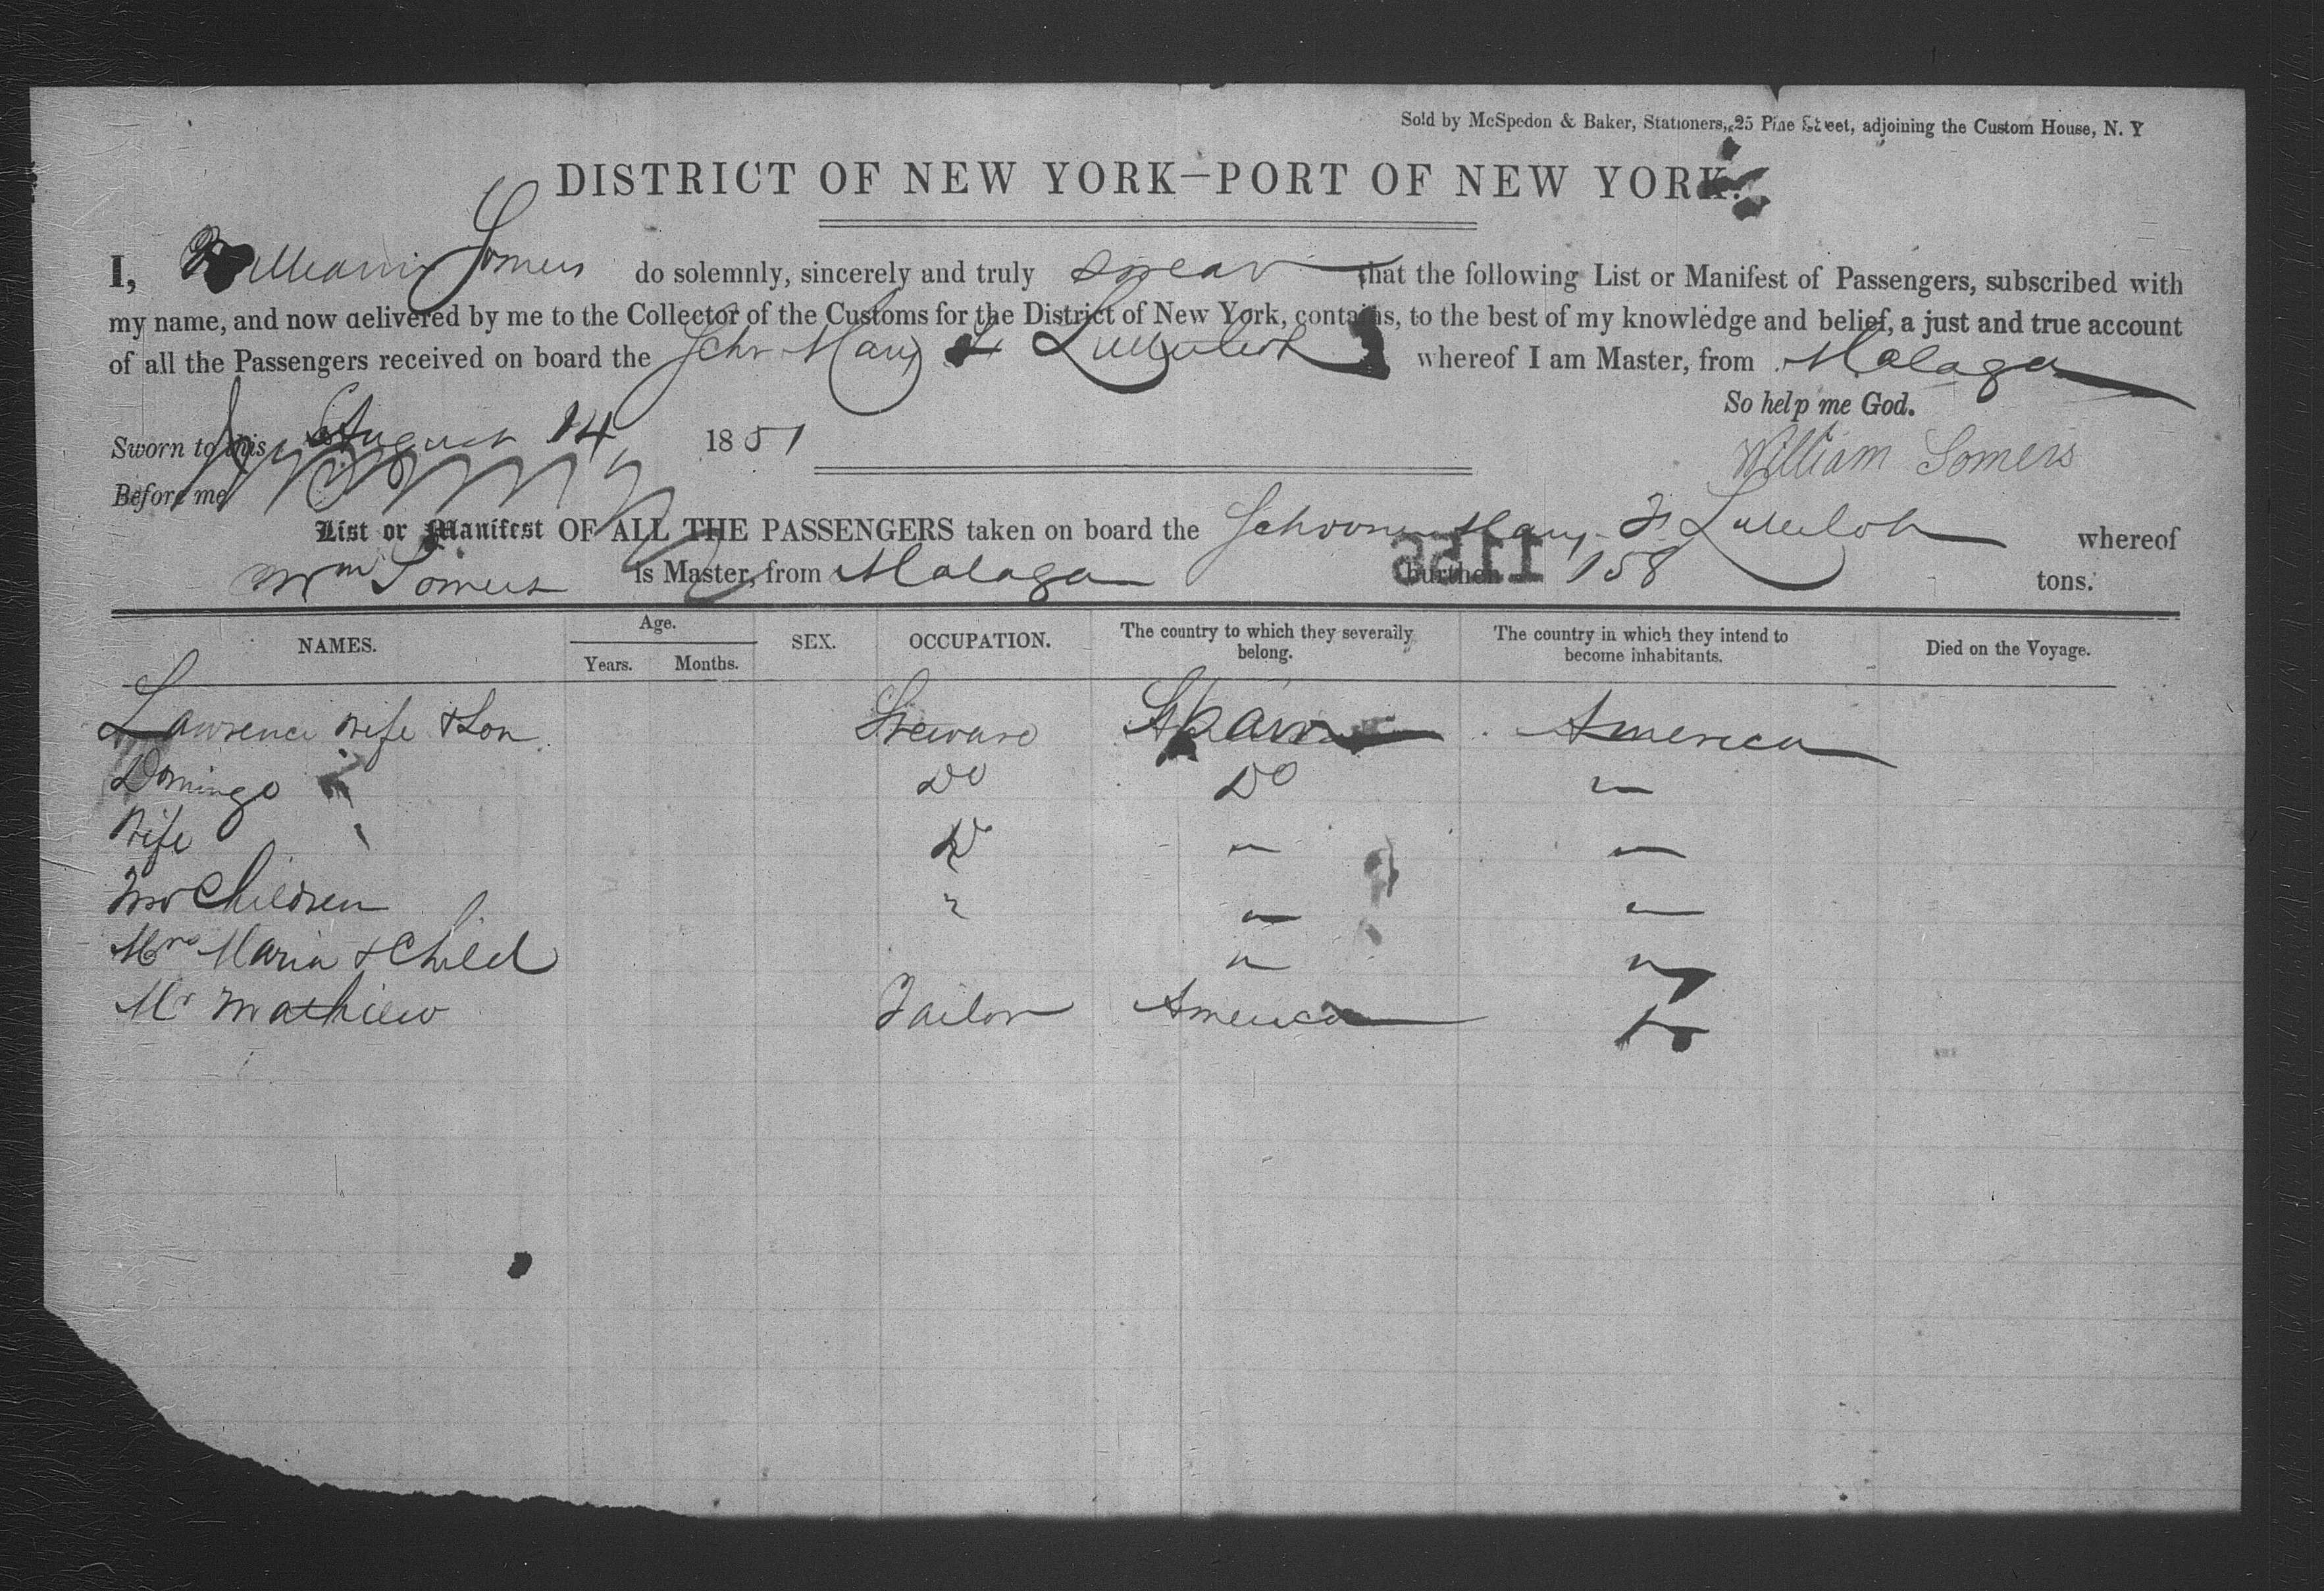 Sold by McSpedon & Baker, Stationers, 25 Pine Street, adjoining the Custom House, N. Y
DISTRICT OF NEW YORK—PORT OF NEW YORK.
I, William Somers do solemnly, sincerely and truly swear that the following List or Manifest of Passengers, subscribed with
my name, and now delivered by me to the Collector of the Customs for the District of New York, contains, to the best of my knowledge and belief, a just and true account
of all the Passengers received on board the Schr Mary whereof I am Master, from Malaga
So help me God.
Sworn to this August 14 1851
William Somers
Before me
List or Manifest OF ALL THE PASSENGERS taken on board the Schooner Mary F. whereof
Wm Somers is Master, from Malaga burthen 158 tons.
1156
NAMES. Age. Years. Months. SEX. OCCUPATION. The country to which they severally belong. The country in which they intend to become inhabitants. Died on the Voyage.
Lawrence wife & Son Steward Spain America
Domingo Do Do "
Wife Do " "
Two Children " " "
Mrs Maria & Child " "
Mr Mathiew Tailor America Do